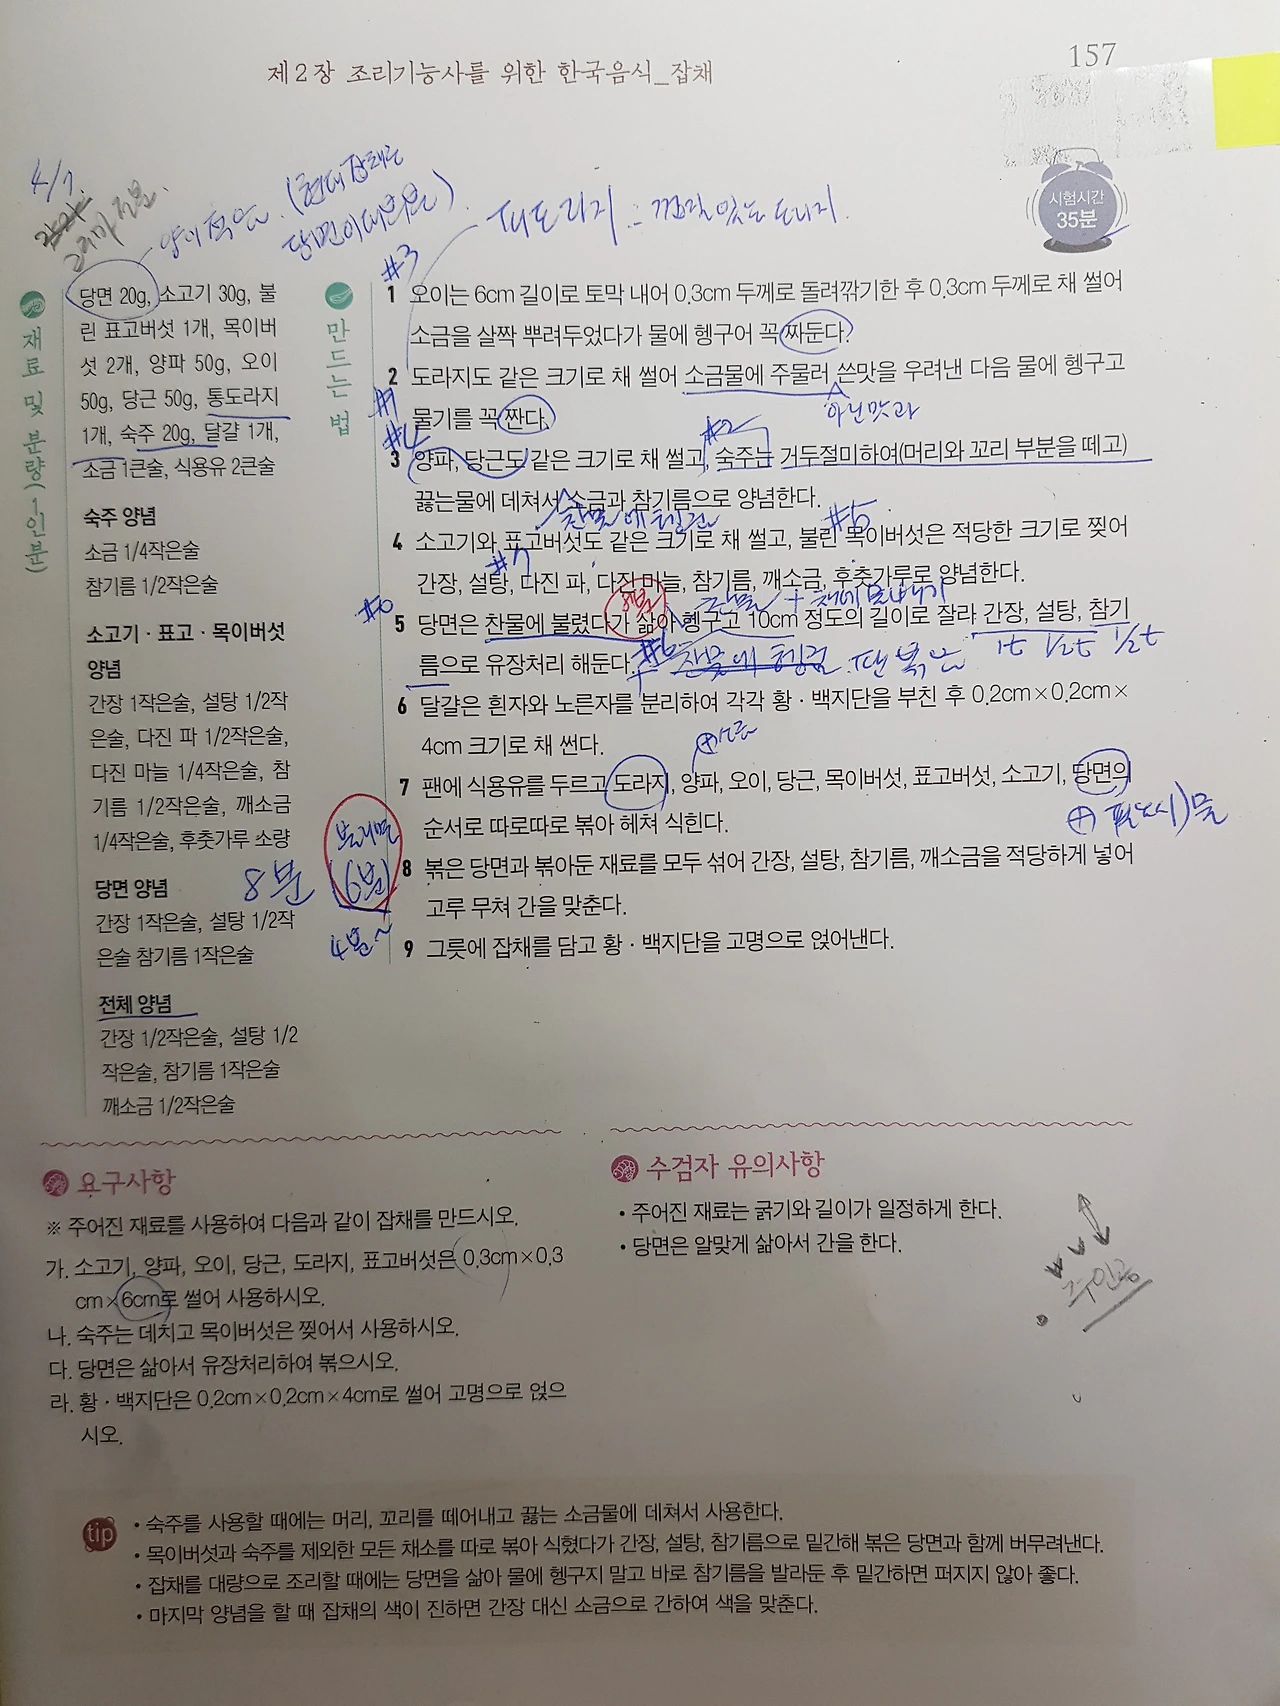 제2장 조리기능사를 위한 한국음식_잡채
157
시험시간
35분
4/1.
양이 적은 (현대잡채는
당면이 대부분)
피도라지 : 껍질있는 도라지.
재료 및 분량(1인분)
당면 20g, 소고기 30g, 불
린 표고버섯 1개, 목이버
섯 2개, 양파 50g, 오이
50g, 당근 50g, 통도라지
1개, 숙주 20g, 달걀 1개,
소금 1큰술, 식용유 2큰술
숙주 양념
소금 1/4작은술
참기름 1/2작은술
소고기·표고·목이버섯
양념
간장 1작은술, 설탕 1/2작
은술, 다진 파 1/2작은술,
다진 마늘 1/4작은술, 참
기름 1/2작은술, 깨소금
1/4작은술, 후춧가루 소량
당면 양념
간장 1작은술, 설탕 1/2작
은술 참기름 1작은술
전체 양념
간장 1/2작은술, 설탕 1/2
작은술, 참기름 1작은술
깨소금 1/2작은술
8분
(6분)
4분~
만드는 법
#3
1 오이는 6cm 길이로 토막 내어 0.3cm 두께로 돌려깎기한 후 0.3cm 두께로 채 썰어
소금을 살짝 뿌려두었다가 물에 헹구어 꼭 짜둔다.
2 도라지도 같은 크기로 채 썰어 소금물에 주물러 쓴맛을 우려낸 다음 물에 헹구고
#1
아린맛과
물기를 꼭 짠다.
#4
#2
3 양파, 당근도 같은 크기로 채 썰고, 숙주는 거두절미하여(머리와 꼬리 부분을 떼고)
끓는물에 데쳐서 소금과 참기름으로 양념한다.
찬물에 헹군
#5
4 소고기와 표고버섯도 같은 크기로 채 썰고, 불린 목이버섯은 적당한 크기로 찢어
#7
간장, 설탕, 다진 파, 다진 마늘, 참기름, 깨소금, 후춧가루로 양념한다.
찬물 + 체에 물빼기
#0
5 당면은 찬물에 불렸다가 삶아 헹구고 10cm 정도의 길이로 잘라 간장, 설탕, 참기
1t 1/2t 1/2t
름으로 유장처리 해둔다.
#6
찬물에 헹굼
6 달걀은 흰자와 노른자를 분리하여 각각 황·백지단을 부친 후 0.2cm×0.2cm×
4cm 크기로 채 썬다.
⊕소금
7 팬에 식용유를 두르고 도라지, 양파, 오이, 당근, 목이버섯, 표고버섯, 소고기, 당면의
순서로 따로따로 볶아 헤쳐 식힌다.
⊕ 필요시)물
8 볶은 당면과 볶아둔 재료를 모두 섞어 간장, 설탕, 참기름, 깨소금을 적당하게 넣어
고루 무쳐 간을 맞춘다.
9 그릇에 잡채를 담고 황·백지단을 고명으로 얹어낸다.
요구사항
※ 주어진 재료를 사용하여 다음과 같이 잡채를 만드시오.
가. 소고기, 양파, 오이, 당근, 도라지, 표고버섯은 0.3cm×0.3
cm×6cm로 썰어 사용하시오.
나. 숙주는 데치고 목이버섯은 찢어서 사용하시오.
다. 당면은 삶아서 유장처리하여 볶으시오.
라. 황·백지단은 0.2cm×0.2cm×4cm로 썰어 고명으로 얹으
시오.
수검자 유의사항
• 주어진 재료는 굵기와 길이가 일정하게 한다.
• 당면은 알맞게 삶아서 간을 한다.
주인공
tip
• 숙주를 사용할 때에는 머리, 꼬리를 떼어내고 끓는 소금물에 데쳐서 사용한다.
• 목이버섯과 숙주를 제외한 모든 채소를 따로 볶아 식혔다가 간장, 설탕, 참기름으로 밑간해 볶은 당면과 함께 버무려낸다.
• 잡채를 대량으로 조리할 때에는 당면을 삶아 물에 헹구지 말고 바로 참기름을 발라둔 후 밑간하면 퍼지지 않아 좋다.
• 마지막 양념을 할 때 잡채의 색이 진하면 간장 대신 소금으로 간하여 색을 맞춘다.